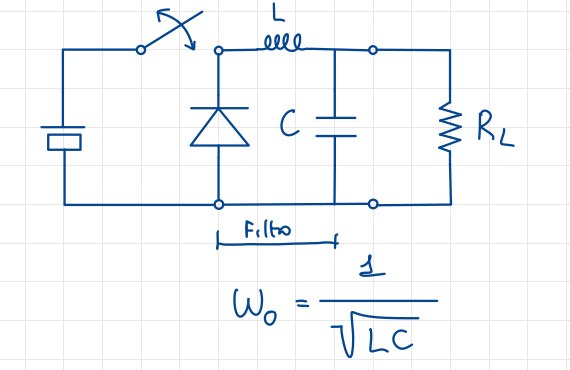 L
C
R_L
Filtro
ω₀ = 1/√LC